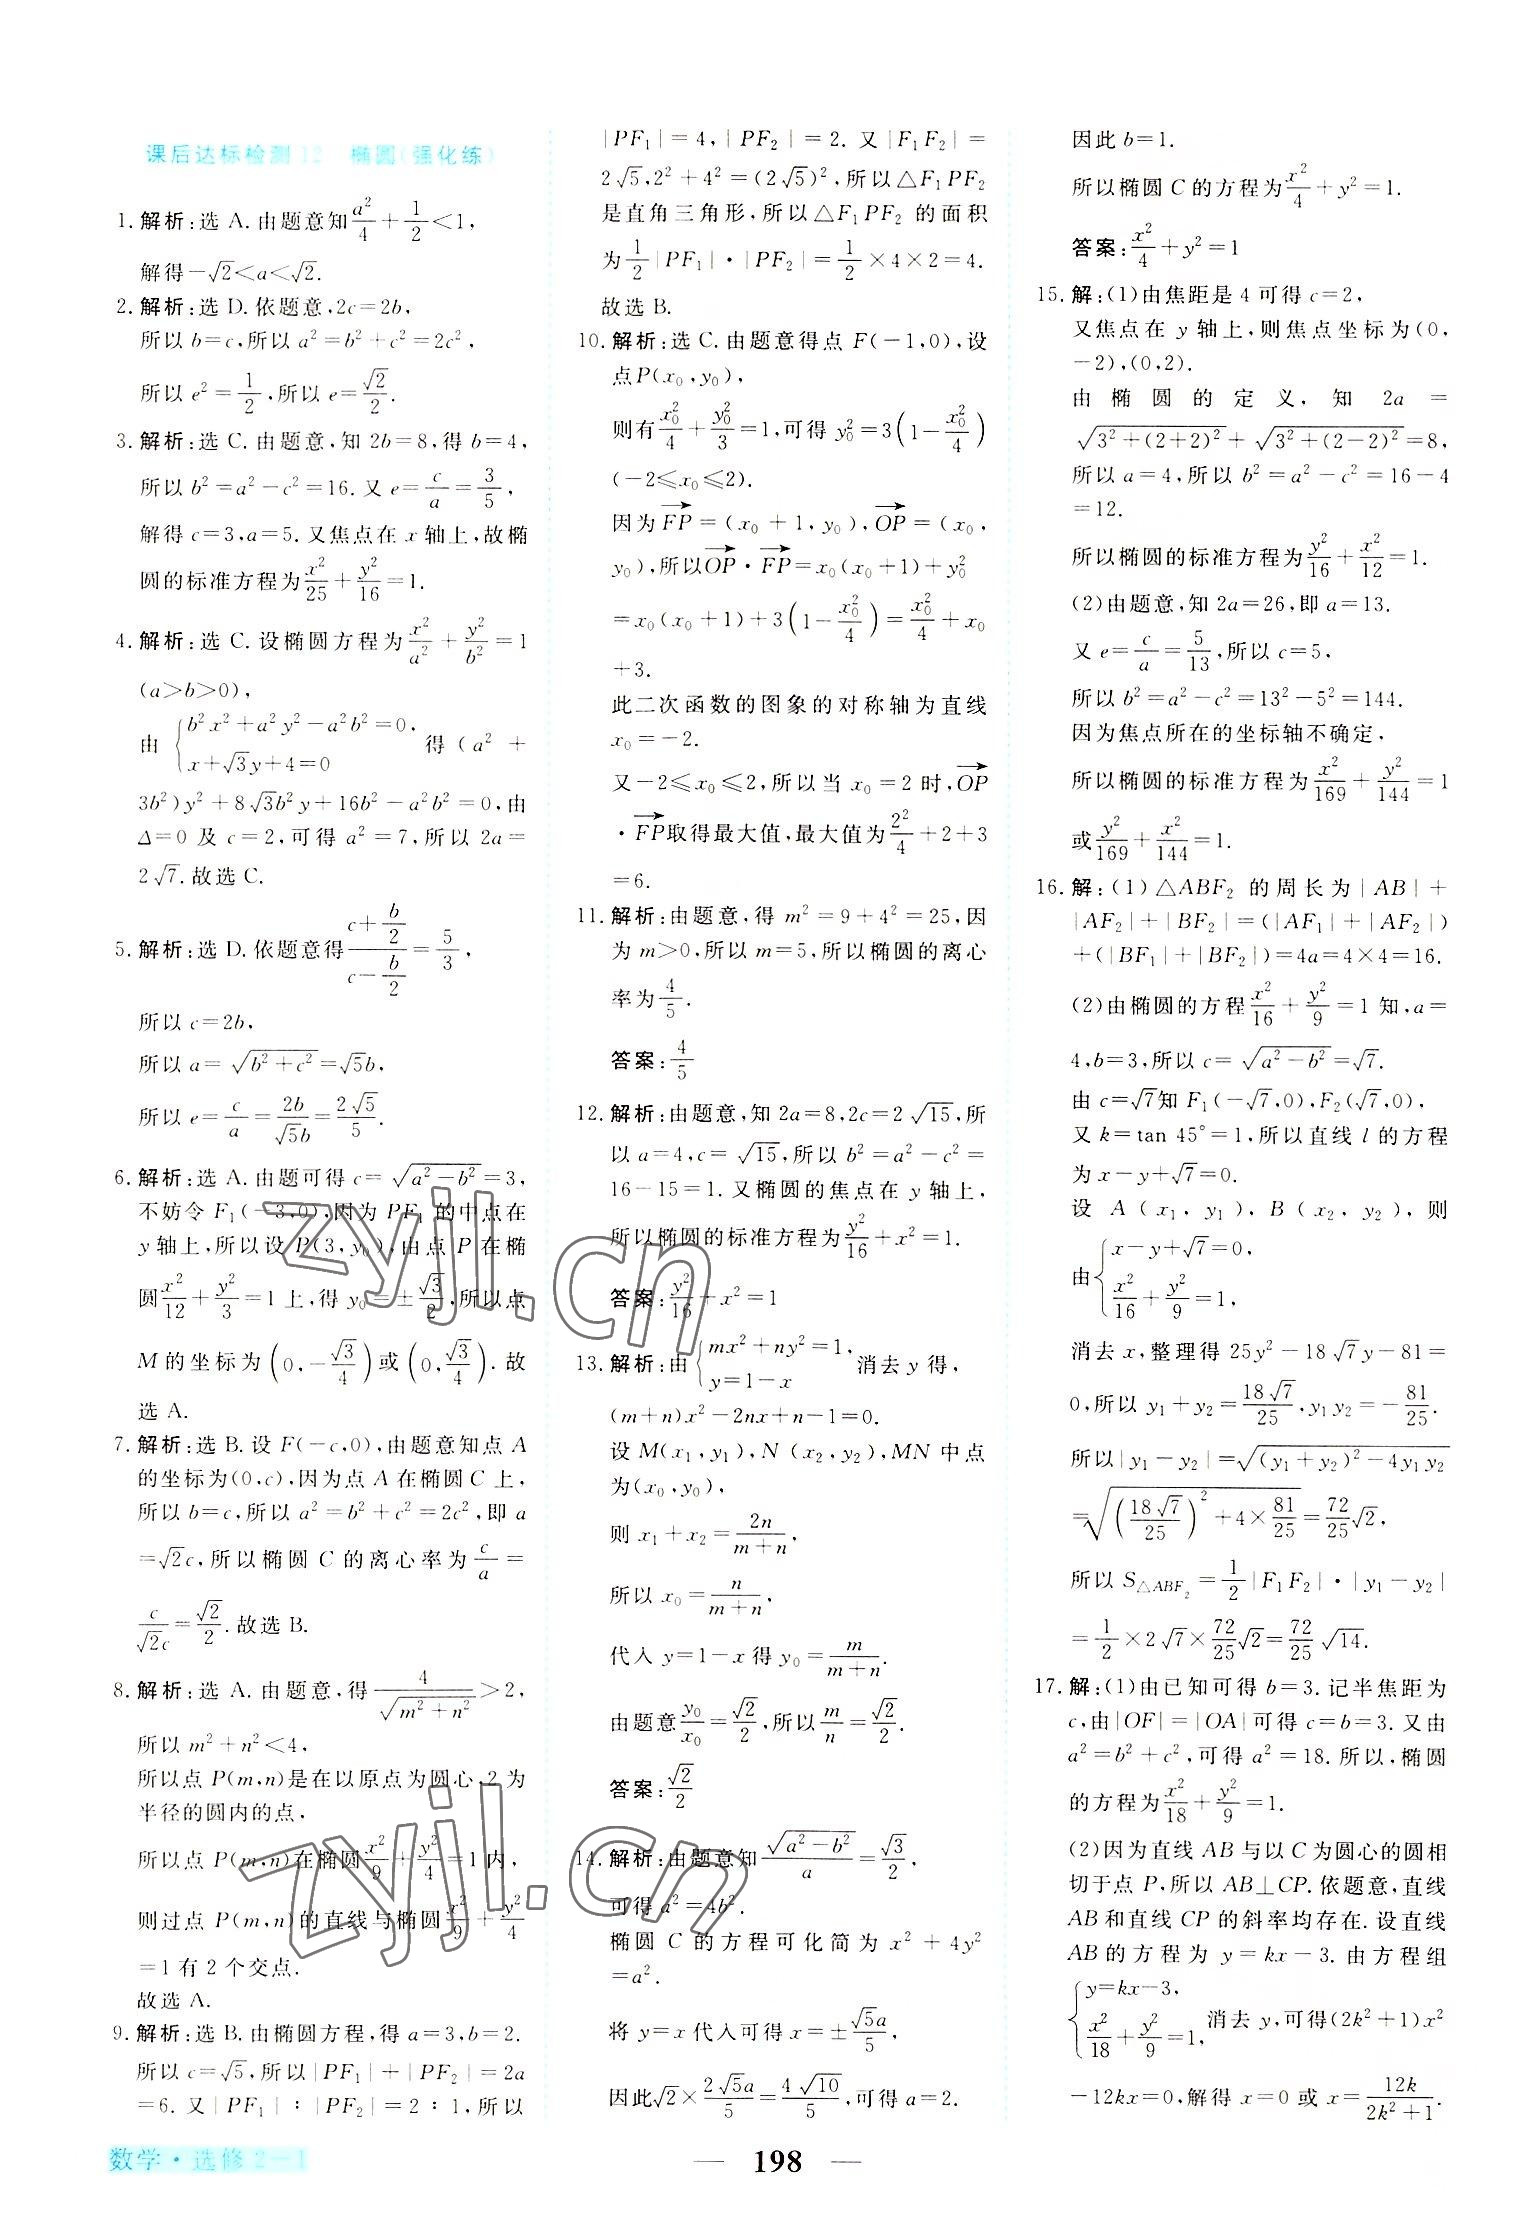 课后达标检测12 椭圆(强化练)
1. 解析:选 A. 由题意知 a²/4 + 1/2 < 1,
解得 -√2 < a < √2.
2. 解析:选 D. 依题意,2c=2b,
所以 b=c,所以 a²=b²+c²=2c²,
所以 e²=1/2,所以 e=√2/2.
3. 解析:选 C. 由题意,知 2b=8,得 b=4,
所以 b²=a²-c²=16. 又 e=c/a=3/5,
解得 c=3,a=5. 又焦点在 x 轴上,故椭
圆的标准方程为 x²/25 + y²/16 = 1.
4. 解析:选 C. 设椭圆方程为 x²/a² + y²/b² = 1
(a>b>0),
由 {b²x²+a²y²-a²b²=0, x+√3y+4=0 得(a²+
3b²)y²+8√3b²y+16b²-a²b²=0,由
Δ=0 及 c=2,可得 a²=7,所以 2a=
2√7. 故选 C.
5. 解析:选 D. 依题意得 (c+b/2)/(c-b/2)=5/3,
所以 c=2b,
所以 a=√(b²+c²)=√5b,
所以 e=c/a=2b/(√5b)=2√5/5.
6. 解析:选 A. 由题可得 c=√(a²-b²)=3,
不妨令 F₁(-3,0),因为 PF₁ 的中点在
y 轴上,所以设 P(3,y₀),由点 P 在椭
圆 x²/12 + y²/3 = 1 上,得 y₀=±√3/2,所以点
M 的坐标为(0,-√3/4)或(0,√3/4). 故
选 A.
7. 解析:选 B. 设 F(-c,0),由题意知点 A
的坐标为(0,c),因为点 A 在椭圆 C 上,
所以 b=c,所以 a²=b²+c²=2c²,即 a
=√2c,所以椭圆 C 的离心率为 c/a=
c/(√2c)=√2/2. 故选 B.
8. 解析:选 A. 由题意,得 4/√(m²+n²) > 2,
所以 m²+n²<4,
所以点 P(m,n)是在以原点为圆心,2 为
半径的圆内的点,
所以点 P(m,n)在椭圆 x²/9 + y²/4 = 1 内,
则过点 P(m,n)的直线与椭圆 x²/9 + y²/4
=1 有 2 个交点.
故选 A.
9. 解析:选 B. 由椭圆方程,得 a=3,b=2.
所以 c=√5,所以|PF₁|+|PF₂|=2a
=6. 又|PF₁|∶|PF₂|=2∶1,所以
|PF₁|=4,|PF₂|=2. 又|F₁F₂|=
2√5,2²+4²=(2√5)²,所以△F₁PF₂
是直角三角形,所以△F₁PF₂ 的面积
为 1/2|PF₁|·|PF₂|=1/2×4×2=4.
故选 B.
10. 解析:选 C. 由题意得点 F(-1,0),设
点P(x₀,y₀),
则有 x₀²/4 + y₀²/3 = 1,可得 y₀²=3(1-x₀²/4)
(-2≤x₀≤2).
因为 FP→=(x₀+1,y₀),OP→=(x₀,
y₀),所以 OP→·FP→=x₀(x₀+1)+y₀²
=x₀(x₀+1)+3(1-x₀²/4)=x₀²/4+x₀
+3.
此二次函数的图象的对称轴为直线
x₀=-2.
又-2≤x₀≤2,所以当 x₀=2 时,OP→
·FP→取得最大值,最大值为 2²/4+2+3
=6.
11. 解析:由题意,得 m²=9+4²=25,因
为 m>0,所以 m=5,所以椭圆的离心
率为 4/5.
答案:4/5
12. 解析:由题意,知 2a=8,2c=2√15,所
以 a=4,c=√15,所以 b²=a²-c²=
16-15=1. 又椭圆的焦点在 y 轴上,
所以椭圆的标准方程为 y²/16+x²=1.
答案:y²/16+x²=1
13. 解析:由 {mx²+ny²=1, y=1-x 消去 y 得,
(m+n)x²-2nx+n-1=0.
设 M(x₁,y₁),N(x₂,y₂),MN 中点
为(x₀,y₀),
则 x₁+x₂=2n/(m+n),
所以 x₀=n/(m+n),
代入 y=1-x 得 y₀=m/(m+n).
由题意 y₀/x₀=√2/2,所以 m/n=√2/2.
答案:√2/2
14. 解析:由题意知 √(a²-b²)/a=√3/2,
可得 a²=4b²,
椭圆 C 的方程可化简为 x²+4y²
=a².
将 y=x 代入可得 x=±√5a/5,
因此√2×2√5a/5=4√10/5,可得 a=2.
因此 b=1.
所以椭圆 C 的方程为 x²/4+y²=1.
答案:x²/4+y²=1
15. 解:(1)由焦距是 4 可得 c=2,
又焦点在 y 轴上,则焦点坐标为(0,
-2),(0,2).
由椭圆的定义,知 2a=
√(3²+(2+2)²)+√(3²+(2-2)²)=8,
所以 a=4,所以 b²=a²-c²=16-4
=12.
所以椭圆的标准方程为 y²/16+x²/12=1.
(2)由题意,知 2a=26,即 a=13.
又 e=c/a=5/13,所以 c=5,
所以 b²=a²-c²=13²-5²=144.
因为焦点所在的坐标轴不确定,
所以椭圆的标准方程为 x²/169+y²/144=1
或 y²/169+x²/144=1.
16. 解:(1)△ABF₂ 的周长为|AB|+
|AF₂|+|BF₂|=(|AF₁|+|AF₂|)
+(|BF₁|+|BF₂|)=4a=4×4=16.
(2)由椭圆的方程 x²/16+y²/9=1 知,a=
4,b=3,所以 c=√(a²-b²)=√7.
由 c=√7知 F₁(-√7,0),F₂(√7,0),
又 k=tan 45°=1,所以直线 l 的方程
为 x-y+√7=0.
设 A(x₁,y₁),B(x₂,y₂),则
由 {x-y+√7=0, x²/16+y²/9=1,
消去 x,整理得 25y²-18√7y-81=
0,所以 y₁+y₂=18√7/25,y₁y₂=-81/25.
所以|y₁-y₂|=√((y₁+y₂)²-4y₁y₂)
=√((18√7/25)²+4×81/25)=72/25√2,
所以 S△ABF₂=1/2|F₁F₂|·|y₁-y₂|
=1/2×2√7×72/25√2=72/25√14.
17. 解:(1)由已知可得 b=3. 记半焦距为
c,由|OF|=|OA|可得 c=b=3. 又由
a²=b²+c²,可得 a²=18. 所以,椭圆
的方程为 x²/18+y²/9=1.
(2)因为直线 AB 与以 C 为圆心的圆相
切于点 P,所以 AB⊥CP. 依题意,直线
AB 和直线 CP 的斜率均存在. 设直线
AB 的方程为 y=kx-3. 由方程组
{y=kx-3, x²/18+y²/9=1, 消去 y,可得(2k²+1)x²
-12kx=0,解得 x=0 或 x=12k/(2k²+1).
数学·选修2-1
— 198 —
zyjl.cn
zyjl.cn